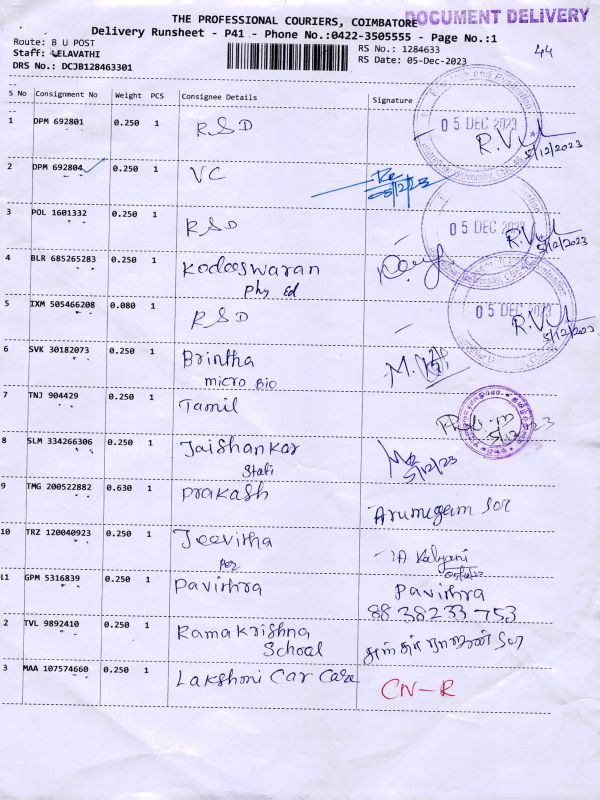 THE PROFESSIONAL COURIERS, COIMBATORE
DOCUMENT DELIVERY
Delivery Runsheet - P41 - Phone No.:0422-3505555 - Page No.:1
Route: B U POST
RS No.: 1284633
44
Staff: LEELAVATHI
RS Date: 05-Dec-2023
DRS No.: DCJB128463301
S No Consignment No Weight PCS Consignee Details Signature
1 DPM 692801 0.250 1 RSD
05 DEC 2023
5/12/2023
2 DPM 692804 0.250 1 VC
05/12/23
3 POL 1601332 0.250 1 RSD
05 DEC 2023
5/12/2023
4 BLR 685265283 0.250 1 Kodeeswaran
Phy Ed
5 IXM 505466208 0.080 1 RSD
05 DEC 2023
5/12/2023
6 SVK 30182073 0.250 1 Brintha
micro Bio
7 TNJ 904429 0.250 1 Tamil
5/12/23
8 SLM 334266306 0.250 1 Jaishankar
Stati
5/12/23
9 TMG 200522882 0.630 1 Prakash
Arumugam Sir
10 TRZ 120040923 0.250 1 Jeevitha
Kalyani
11 GPM 5316839 0.250 1 Pavithra
Pavithra
8838233753
2 TVL 9892410 0.250 1 Ramakrishna
School
3 MAA 107574660 0.250 1 Lakshmi Car Care
CN-R